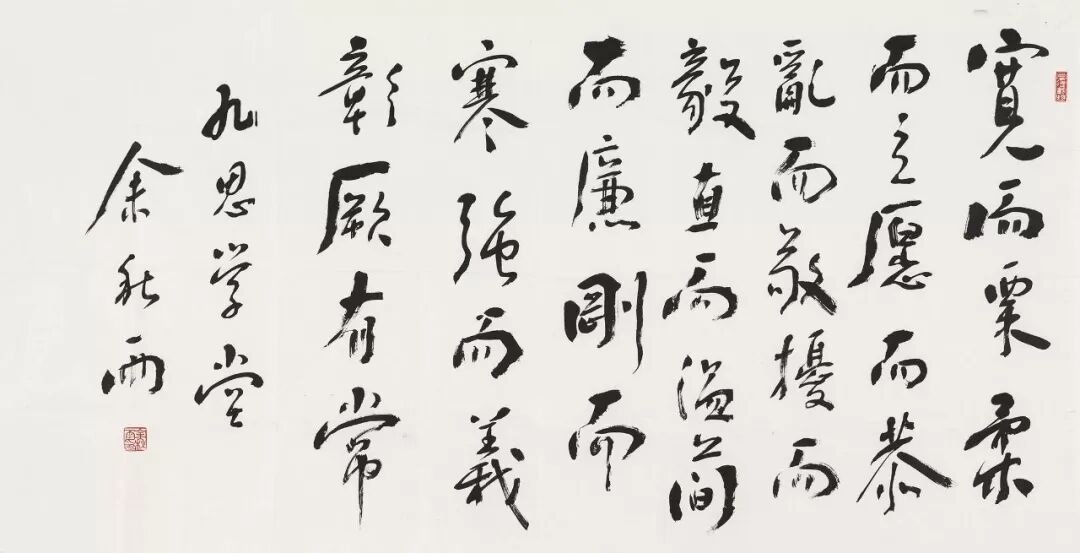 寬而栗柔
而立愿而恭
亂而敬擾而
毅直而溫簡
而廉剛而
寒强而義
彰厥有常
九思学堂
余秋雨